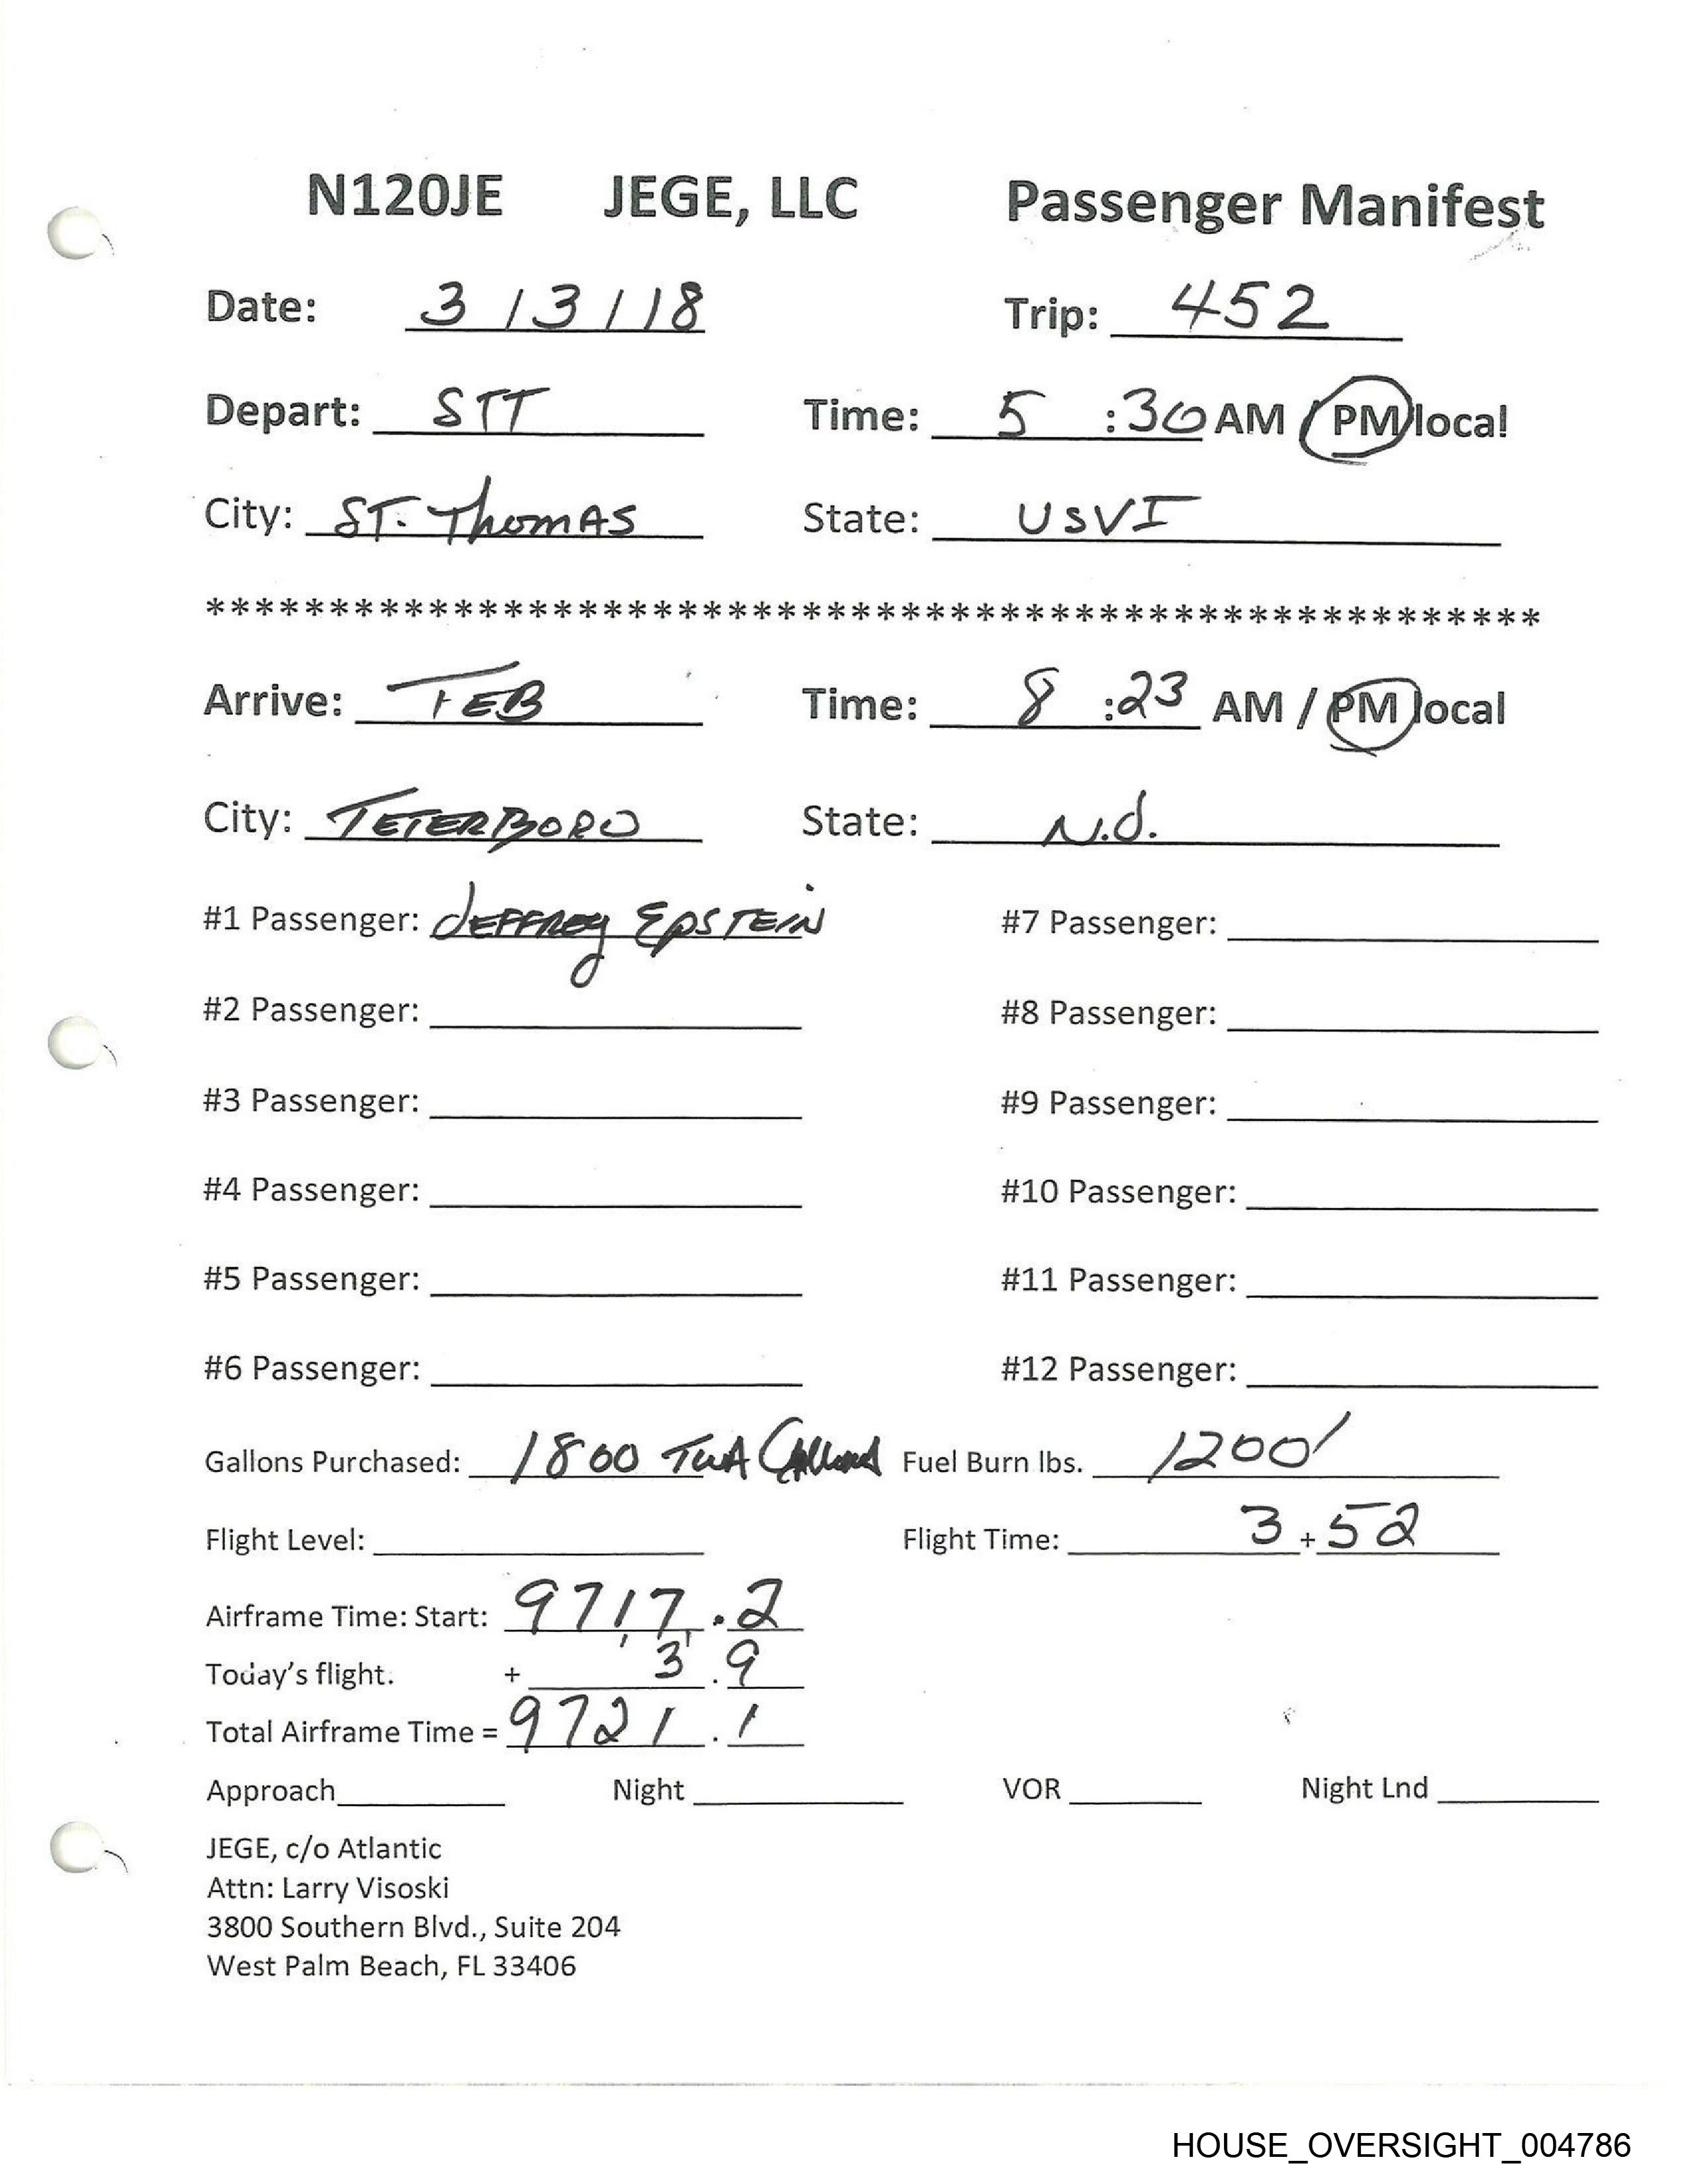 N120JE JEGE, LLC Passenger Manifest
Date: 3 / 3 / 18 Trip: 452
Depart: STT Time: 5 :30 AM / PM local
City: ST. Thomas State: USVI
******************************************************
Arrive: TEB Time: 8 :23 AM / PM local
City: TETERBORO State: N.J.
#1 Passenger: JEFFREY EPSTEIN #7 Passenger:
#2 Passenger: #8 Passenger:
#3 Passenger: #9 Passenger:
#4 Passenger: #10 Passenger:
#5 Passenger: #11 Passenger:
#6 Passenger: #12 Passenger:
Gallons Purchased: 1800 Fuel Burn lbs. 1200
Flight Level: Flight Time: 3 + 52
Airframe Time: Start: 9717.2
Today's flight. + 3.9
Total Airframe Time = 9721.1
Approach Night VOR Night Lnd
JEGE, c/o Atlantic
Attn: Larry Visoski
3800 Southern Blvd., Suite 204
West Palm Beach, FL 33406
HOUSE_OVERSIGHT_004786